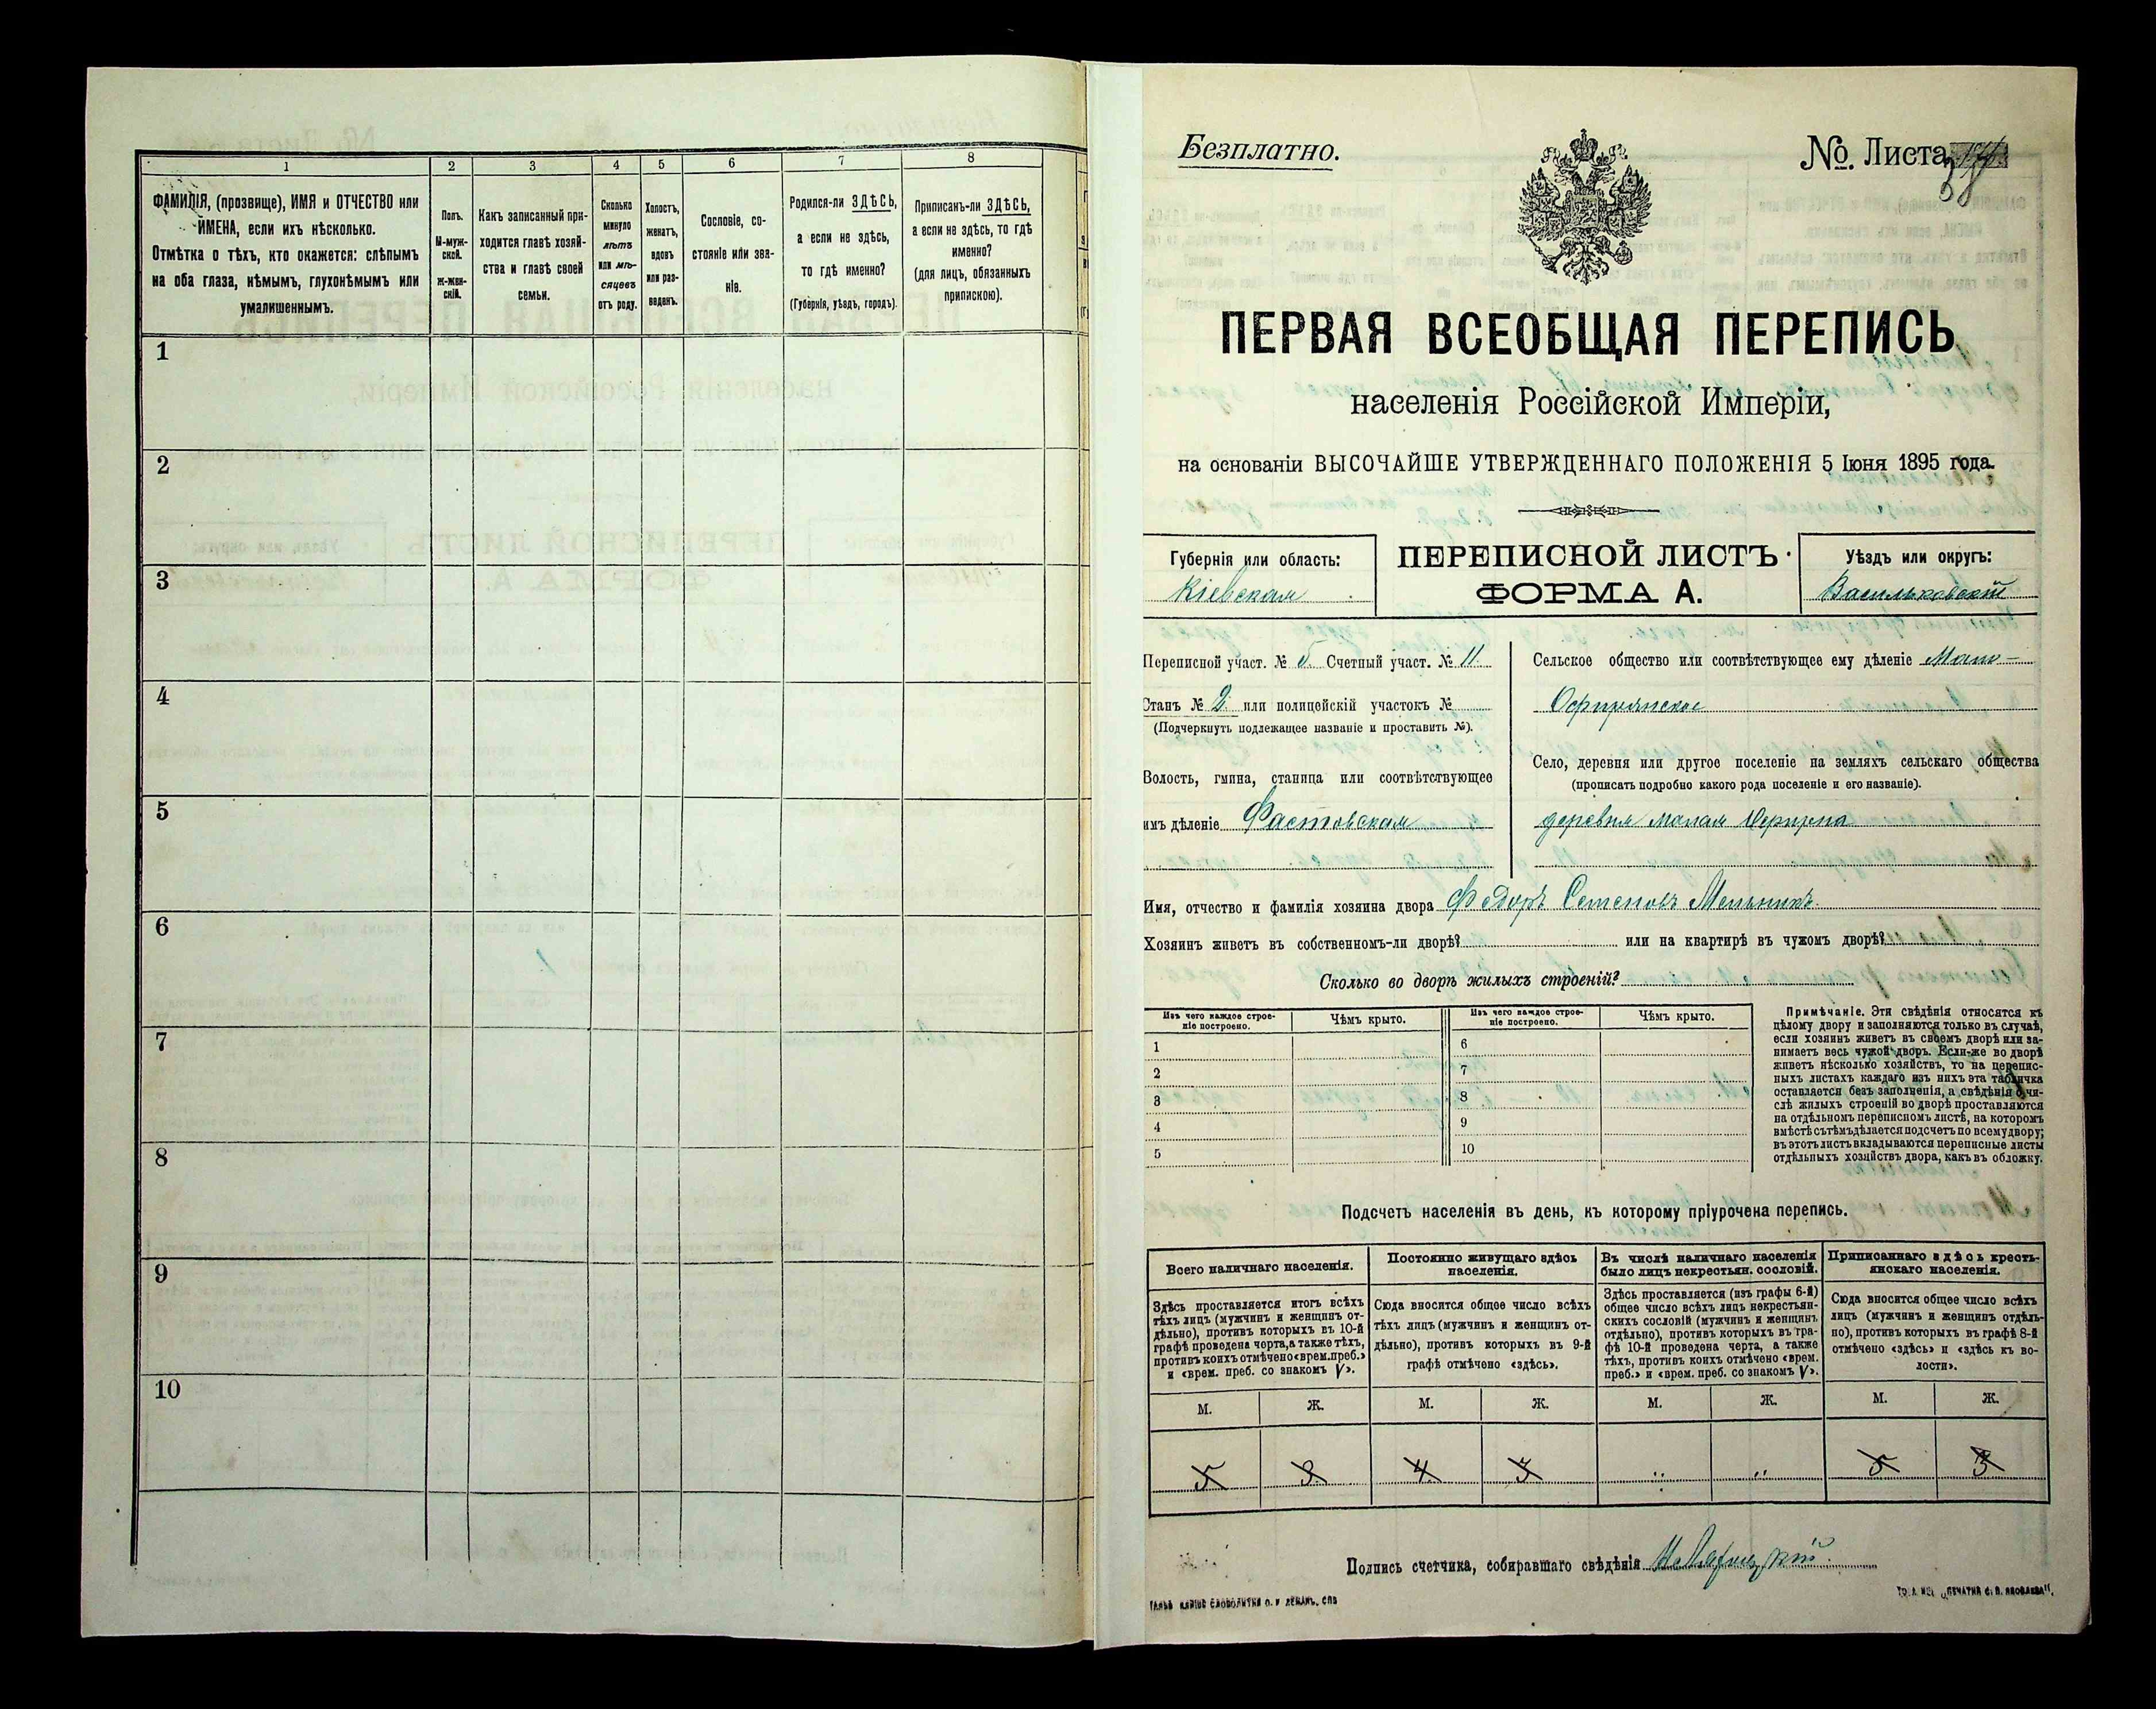 1
2
3
4
5
6
7
8
ФАМИЛІЯ, (прозвище), ИМЯ и ОТЧЕСТВО или
ИМЕНА, если ихъ нѣсколько.
Отмѣтка о тѣхъ, кто окажется: слѣпымъ
на оба глаза, нѣмымъ, глухонѣмымъ или
умалишеннымъ.
Полъ.
М-муж-
ской.
ж-жен-
скій.
Какъ записанный при-
ходится главѣ хозяй-
ства и главѣ своей
семьи.
Сколько
минуло
лѣтъ
или мѣ-
сяцевъ
отъ роду.
Холостъ,
женатъ,
вдовъ
или раз-
веденъ.
Сословіе, со-
стояніе или зва-
ніе.
Родился-ли ЗДѢСЬ,
а если не здѣсь,
то гдѣ именно?
(Губернія, уѣздъ, городъ).
Приписанъ-ли ЗДѢСЬ,
а если не здѣсь, то гдѣ
именно?
(для лицъ, обязанныхъ
припискою).
1
2
3
4
5
6
7
8
9
10
Безплатно.
№ Листа
ПЕРВАЯ ВСЕОБЩАЯ ПЕРЕПИСЬ
населенія Россійской Имперіи,
на основаніи ВЫСОЧАЙШЕ УТВЕРЖДЕННАГО ПОЛОЖЕНІЯ 5 Іюня 1895 года.
Губернія или область:
Кіевская
ПЕРЕПИСНОЙ ЛИСТЪ
ФОРМА А.
Уѣздъ или округъ:
Васильковскій
Переписной участ. № 5 Счетный участ. № 11
Станъ № 2 или полицейскій участокъ №
(Подчеркнуть подлежащее названіе и проставить №).
Волость, гмина, станица или соотвѣтствующее
имъ дѣленіе Фастовская
Сельское общество или соотвѣтствующее ему дѣленіе Мало-
Офирянское
Село, деревня или другое поселеніе на земляхъ сельскаго общества
(прописать подробно какого рода поселеніе и его названіе).
деревня малая Офирна
Имя, отчество и фамилія хозяина двора Федоръ Семеновъ Мельникъ
Хозяинъ живетъ въ собственномъ-ли дворѣ? или на квартирѣ въ чужомъ дворѣ?
Сколько во дворѣ жилыхъ строеній?
Изъ чего каждое строе-
ніе построено.
Чѣмъ крыто.
Изъ чего каждое строе-
ніе построено.
Чѣмъ крыто.
1
2
3
4
5
6
7
8
9
10
Примѣчаніе. Эти свѣдѣнія относятся къ
цѣлому двору и заполняются только въ случаѣ,
если хозяинъ живетъ въ своемъ дворѣ или за-
нимаетъ весь чужой дворъ. Если-же во дворѣ
живетъ нѣсколько хозяйствъ, то на перепис-
ныхъ листахъ каждаго изъ нихъ эта табличка
оставляется безъ заполненія, а свѣдѣнія о чи-
слѣ жилыхъ строеній во дворѣ проставляются
на отдѣльномъ переписномъ листѣ, на которомъ
вмѣстѣ съ тѣмъ дѣлается подсчетъ по всему двору;
въ этотъ листъ вкладываются переписные листы
отдѣльныхъ хозяйствъ двора, какъ въ обложку.
Подсчетъ населенія въ день, къ которому пріурочена перепись.
Всего наличнаго населенія.
Здѣсь проставляется итогъ всѣхъ
тѣхъ лицъ (мужчинъ и женщинъ от-
дѣльно), противъ которыхъ въ 10-й
графѣ проведена черта, а также тѣхъ,
противъ коихъ отмѣчено «врем. преб.»
и «врем. преб. со знакомъ V».
Постоянно живущаго здѣсь
населенія.
Сюда вносится общее число всѣхъ
тѣхъ лицъ (мужчинъ и женщинъ от-
дѣльно), противъ которыхъ въ 9-й
графѣ отмѣчено «здѣсь».
Въ числѣ наличнаго населенія
было лицъ некрестьян. сословій.
Здѣсь проставляется (изъ графы 6-й)
общее число всѣхъ лицъ некрестьян-
скихъ сословій (мужчинъ и женщинъ
отдѣльно), противъ которыхъ въ гра-
фѣ 10-й проведена черта, а также
тѣхъ, противъ коихъ отмѣчено «врем.
преб.» и «врем. преб. со знакомъ V».
Приписаннаго здѣсь кресть-
янскаго населенія.
Сюда вносится общее число всѣхъ
лицъ (мужчинъ и женщинъ отдѣль-
но), противъ которыхъ въ графѣ 8-й
отмѣчено «здѣсь» и «здѣсь къ во-
лости».
М. Ж. М. Ж. М. Ж. М. Ж.
5 3 4 3 " " 5 3
Подпись счетчика, собиравшаго свѣдѣнія